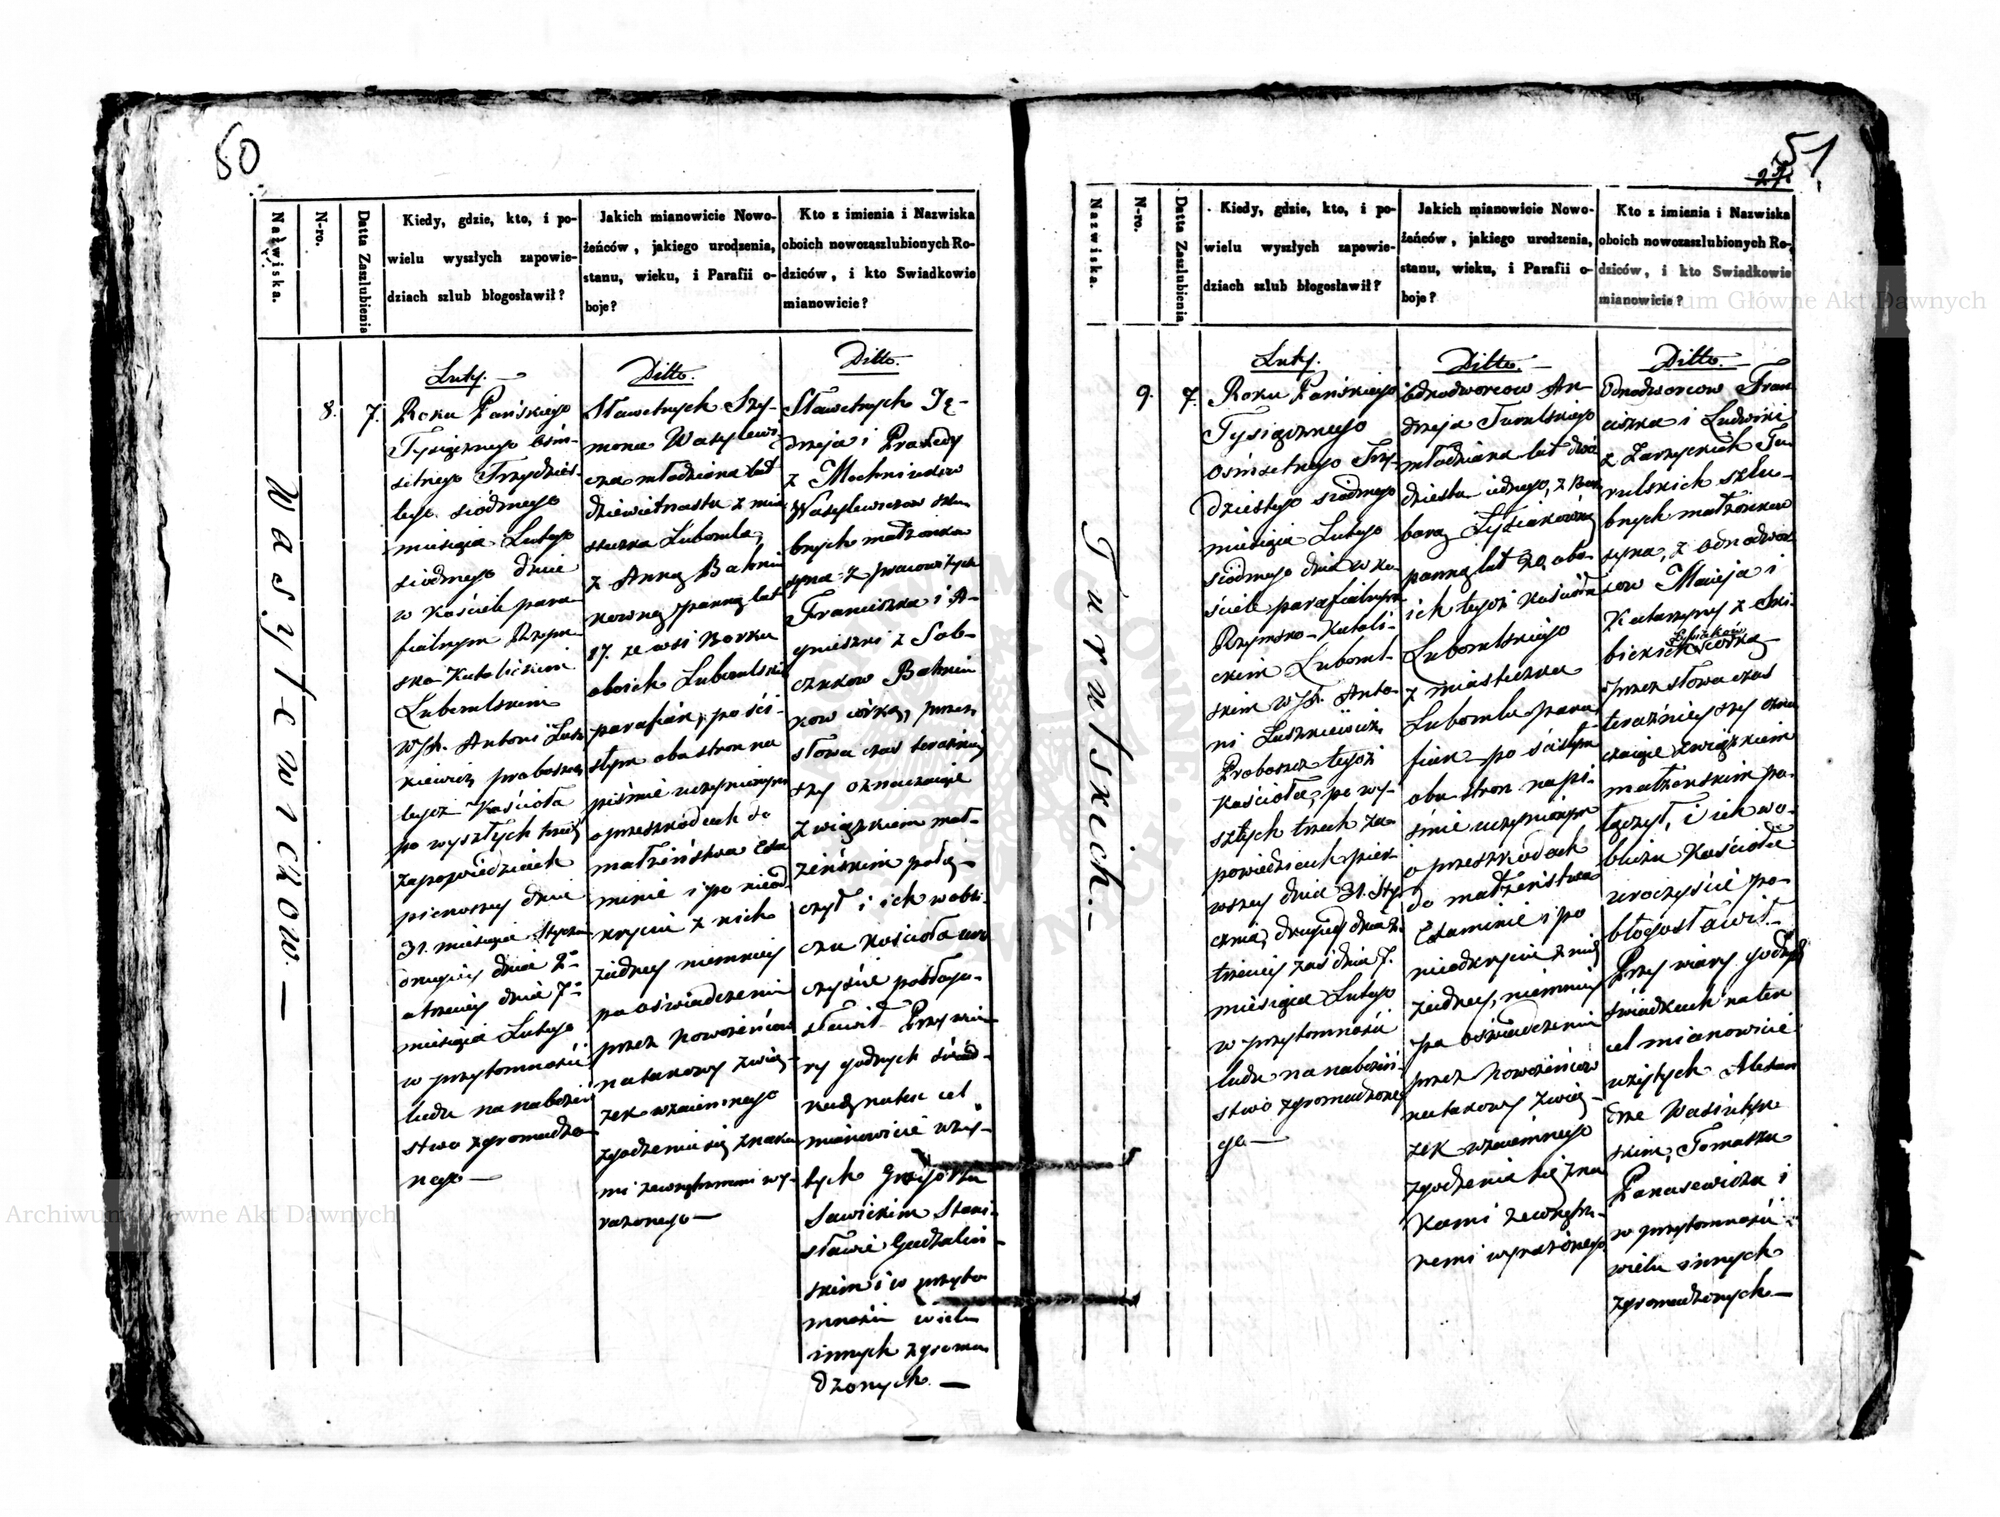 50
Nazwiska.
N-ro.
Datta Zaszlubienia
Kiedy, gdzie, kto, i po-
wielu wyszłych zapowie-
dziach szlub błogosławił?
Jakich mianowicie Nowo-
żeńców, jakiego urodzenia,
stanu, wieku, i Parafii o-
boje?
Kto z imienia i Nazwiska
oboich nowozaszlubionych Ro-
dziców, i kto Swiadkowie
mianowicie?
Wasylewiczow.—
8.
7.
Luty.—
Roku Pańskiego
Tysiącznego ośm-
setnego Trzydzies-
tego siodmego
miesiąca Lutego
siodmego dnia
w Kościele para
fialnym Rzym
sko-Katolickim
Lubomlskim
WJX. Antoni Lusz
kiewicz proboszcz
tegoż Kościoła
po wyszłych trzech
zapowiedziach
pierwszey dnia
31. miesiąca Stycznia
drugiey dnia 2º
a trzeciey dnia 7º
miesiąca Lutego
w przytomności
ludu na nabożeń
stwo zgromadzo
nego—
Ditto.
Sławetnych Szy-
mona Wasylewi
cza młodziana lat
dziewiętnastu z mia
steczka Lubomla,
z Anną Bahniu
kowną panną lat
17. ze wsi Borku
oboich Lubomlskich
parafian, po ści-
słym oba stron na
piśmie uczynionym
o przeszkodach do
małżeństwa Exa
minie i po nieod
kryciu z nich
żadney niemniey
po oświadczeniu
przez Nowożeńców
na takowy zwią-
zek wzaiemnego
zgodzenia się znaka
mi zewnętrznemi wy-
rażonego—
Ditto.
Sławetnych Ję-
drzeja i Praxedy
z Mochniuków
Wasylewiczow szlu
bnych małżonków
syna z pracowitych
Franciszka i A-
gnieszki z Sob-
czuków Bahniu
kow córką, przez
słowa czas teraźniey
szy oznaczaiące
związkiem mał-
żeńskim połą-
czył i ich w obli
czu Kościoła uro
czyście pobłogo-
sławił. Przy wia
ry godnych świad-
kach na ten cel
mianowicie uży-
tych Grzegorzu
Sawickim Stani-
sławie Gudzaliń-
skim i w przyto
mności wielu
innych zgroma
dzonych.—
51
Nazwiska.
N-ro.
Datta Zaszlubienia
Kiedy, gdzie, kto, i po-
wielu wyszłych zapowie-
dziach szlub błogosławił?
Jakich mianowicie Nowo-
żeńców, jakiego urodzenia,
stanu, wieku, i Parafii o-
boje?
Kto z imienia i Nazwiska
oboich nowozaszlubionych Ro-
dziców, i kto Swiadkowie
mianowicie?
Turulskich.—
9.
7.
Luty.
Roku Pańskiego
Tysiącznego
ośmsetnego Trzy
dziestego siodmego
miesiąca Lutego
siodmego dnia w Ko
ściele parafialnym
Rzymsko-Katoli-
ckim Luboml-
skim WJX. Anto-
ni Luszkiewicz
Proboszcz tegoż
Kościoła, po wy-
szłych trzech za-
powiedziach pier-
wszey dnia 31. Sty
cznia, drugiey dnia 2.
trzeciey zaś dnia 7.
miesiąca Lutego
w przytomności
ludu na nabożeń-
stwo zgromadzone
go—
Ditto.—
Odnodworcow An-
drzeja Turulskiego
młodziana lat dwu
dziestu iednego, z Bar
barą Łysiakówną
panną lat 20, obo-
ich tegoż Kościoła
Lubomlskiego
z miasteczka
Lubomla para
fian po ścisłym
oba stron na pi-
śmie uczynionym
o przeszkodach
do małżeństwa
Examinie i po
nieodkryciu z nich
żadney, niemniey
po oświadczeniu
przez Nowożeńców
na takowy zwią-
zek wzaiemnego
zgodzenia się zna
kami zewnętrz-
nemi wyrażonego
Ditto.—
Odnodworcow Fran
ciszka i Ludwiki
z Zarzyckich Tu
rulskich szlu-
bnych małżonków
syna, z Odnodwor
cow Macieja i
Katarzyny z Ski-
bickich Łysiaków córką—
przez słowa czas
teraźnieyszy ozna
czaiące związkiem
małżeńskim po-
łączył, i ich w o-
bliczu Kościoła
uroczyście po-
błogosławił—
Przy wiary godnych
świadkach na ten
cel mianowicie
użytych Alexan
drze Wasiutyń
skim, Tomaszu
Panasewiczu i
w przytomności
wielu innych
zgromadzonych—
Archiwum Główne Akt Dawnych
Archiwum Główne Akt Dawnych